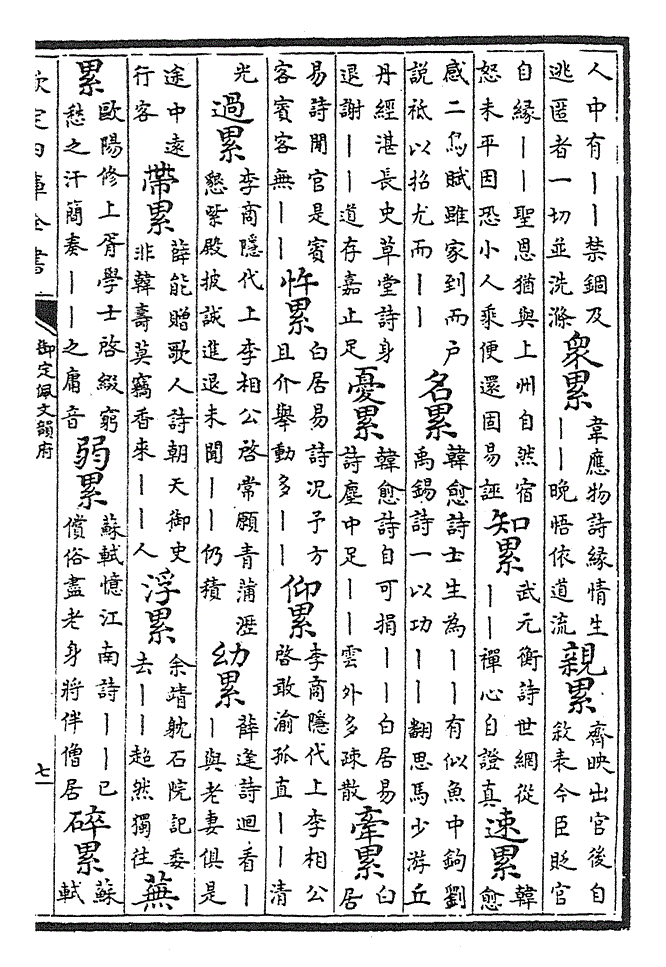 人中有丨丨禁錮及
逃匿者一切並洗滌
衆累
韋應物詩緣情生
丨丨晚悟依道流
親累
齊映出官後自
敘表今臣貶官
自緣丨丨聖恩猶與上州自然宿
怒未平因恐小人乘便還固易誣
知累
武元衡詩世網從
丨丨禪心自證真
速累
韓
愈
感二鳥賦雖家到而户
説祗以招尤而丨丨
名累
韓愈詩士生為丨丨有似魚中鉤劉
禹錫詩一以功丨丨翻思馬少游丘
丹經湛長史草堂詩身
退謝丨丨道存嘉止足
憂累
韓愈詩自可捐丨丨白居易
詩塵中足丨丨雲外多疎散
牽累
白
居
易詩閒官是賓
客賓客無丨丨
忤累
白居易詩況予方
且介舉動多丨丨
仰累
李商隱代上李相公
啓敢渝孤直丨丨清
光
過累
李商隱代上李相公啓常願青蒲瀝
懇紫殿披誠進退未聞丨丨仍積
幼累
薛逢詩迴看丨
丨與老妻俱是
途中遠
行客
帶累
薛能贈歌人詩朝天御史
非韓壽莫竊香來丨丨人
浮累
余靖躭石院記委
去丨丨超然獨往
蕪
累
歐陽修上胥學士啓綴窮
愁之汗簡奏丨丨之庸音
弱累
蘇軾憶江南詩丨丨已
償俗盡老身將伴僧居
碎累
蘇
軾
欽定四庫全書
御定佩文韻府
七